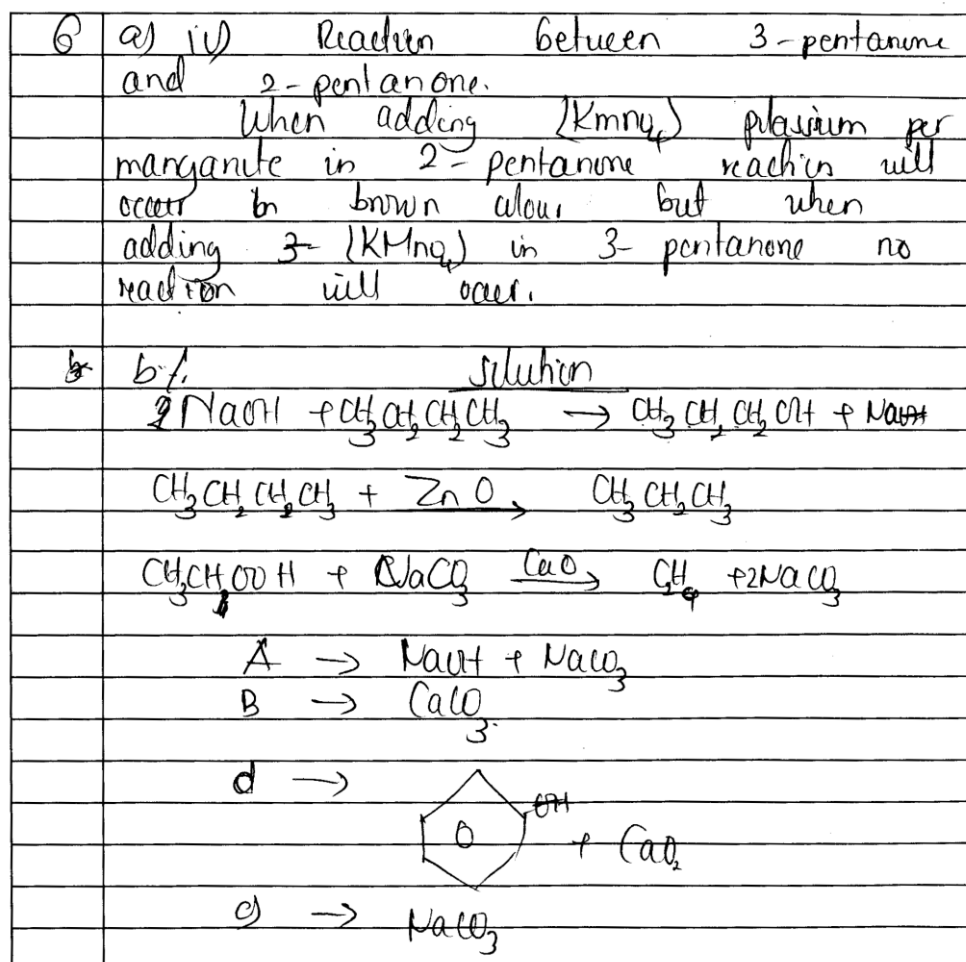 6 a) iv) Reaction between 3-pentanone
and 2-pentanone.
When adding (Kmno4) potassium per
manganite in 2-pentanone reaction will
occur in brown colour but when
adding 3- (KMno4) in 3-pentanone no
reaction will occur.
b b/. solution
2NaOH + CH3CH2CH2CH3 → CH3CH2CH2OH + NaOH
CH3CH2CH2CH3 + ZnO → CH3CH2CH3
CH3CH2OOH + NaCO3 CaO → C2H4 + 2NaCO3
A → NaOH + NaCO3
B → CaCO3.
d → O OH + CaO2
c) → NaCO3